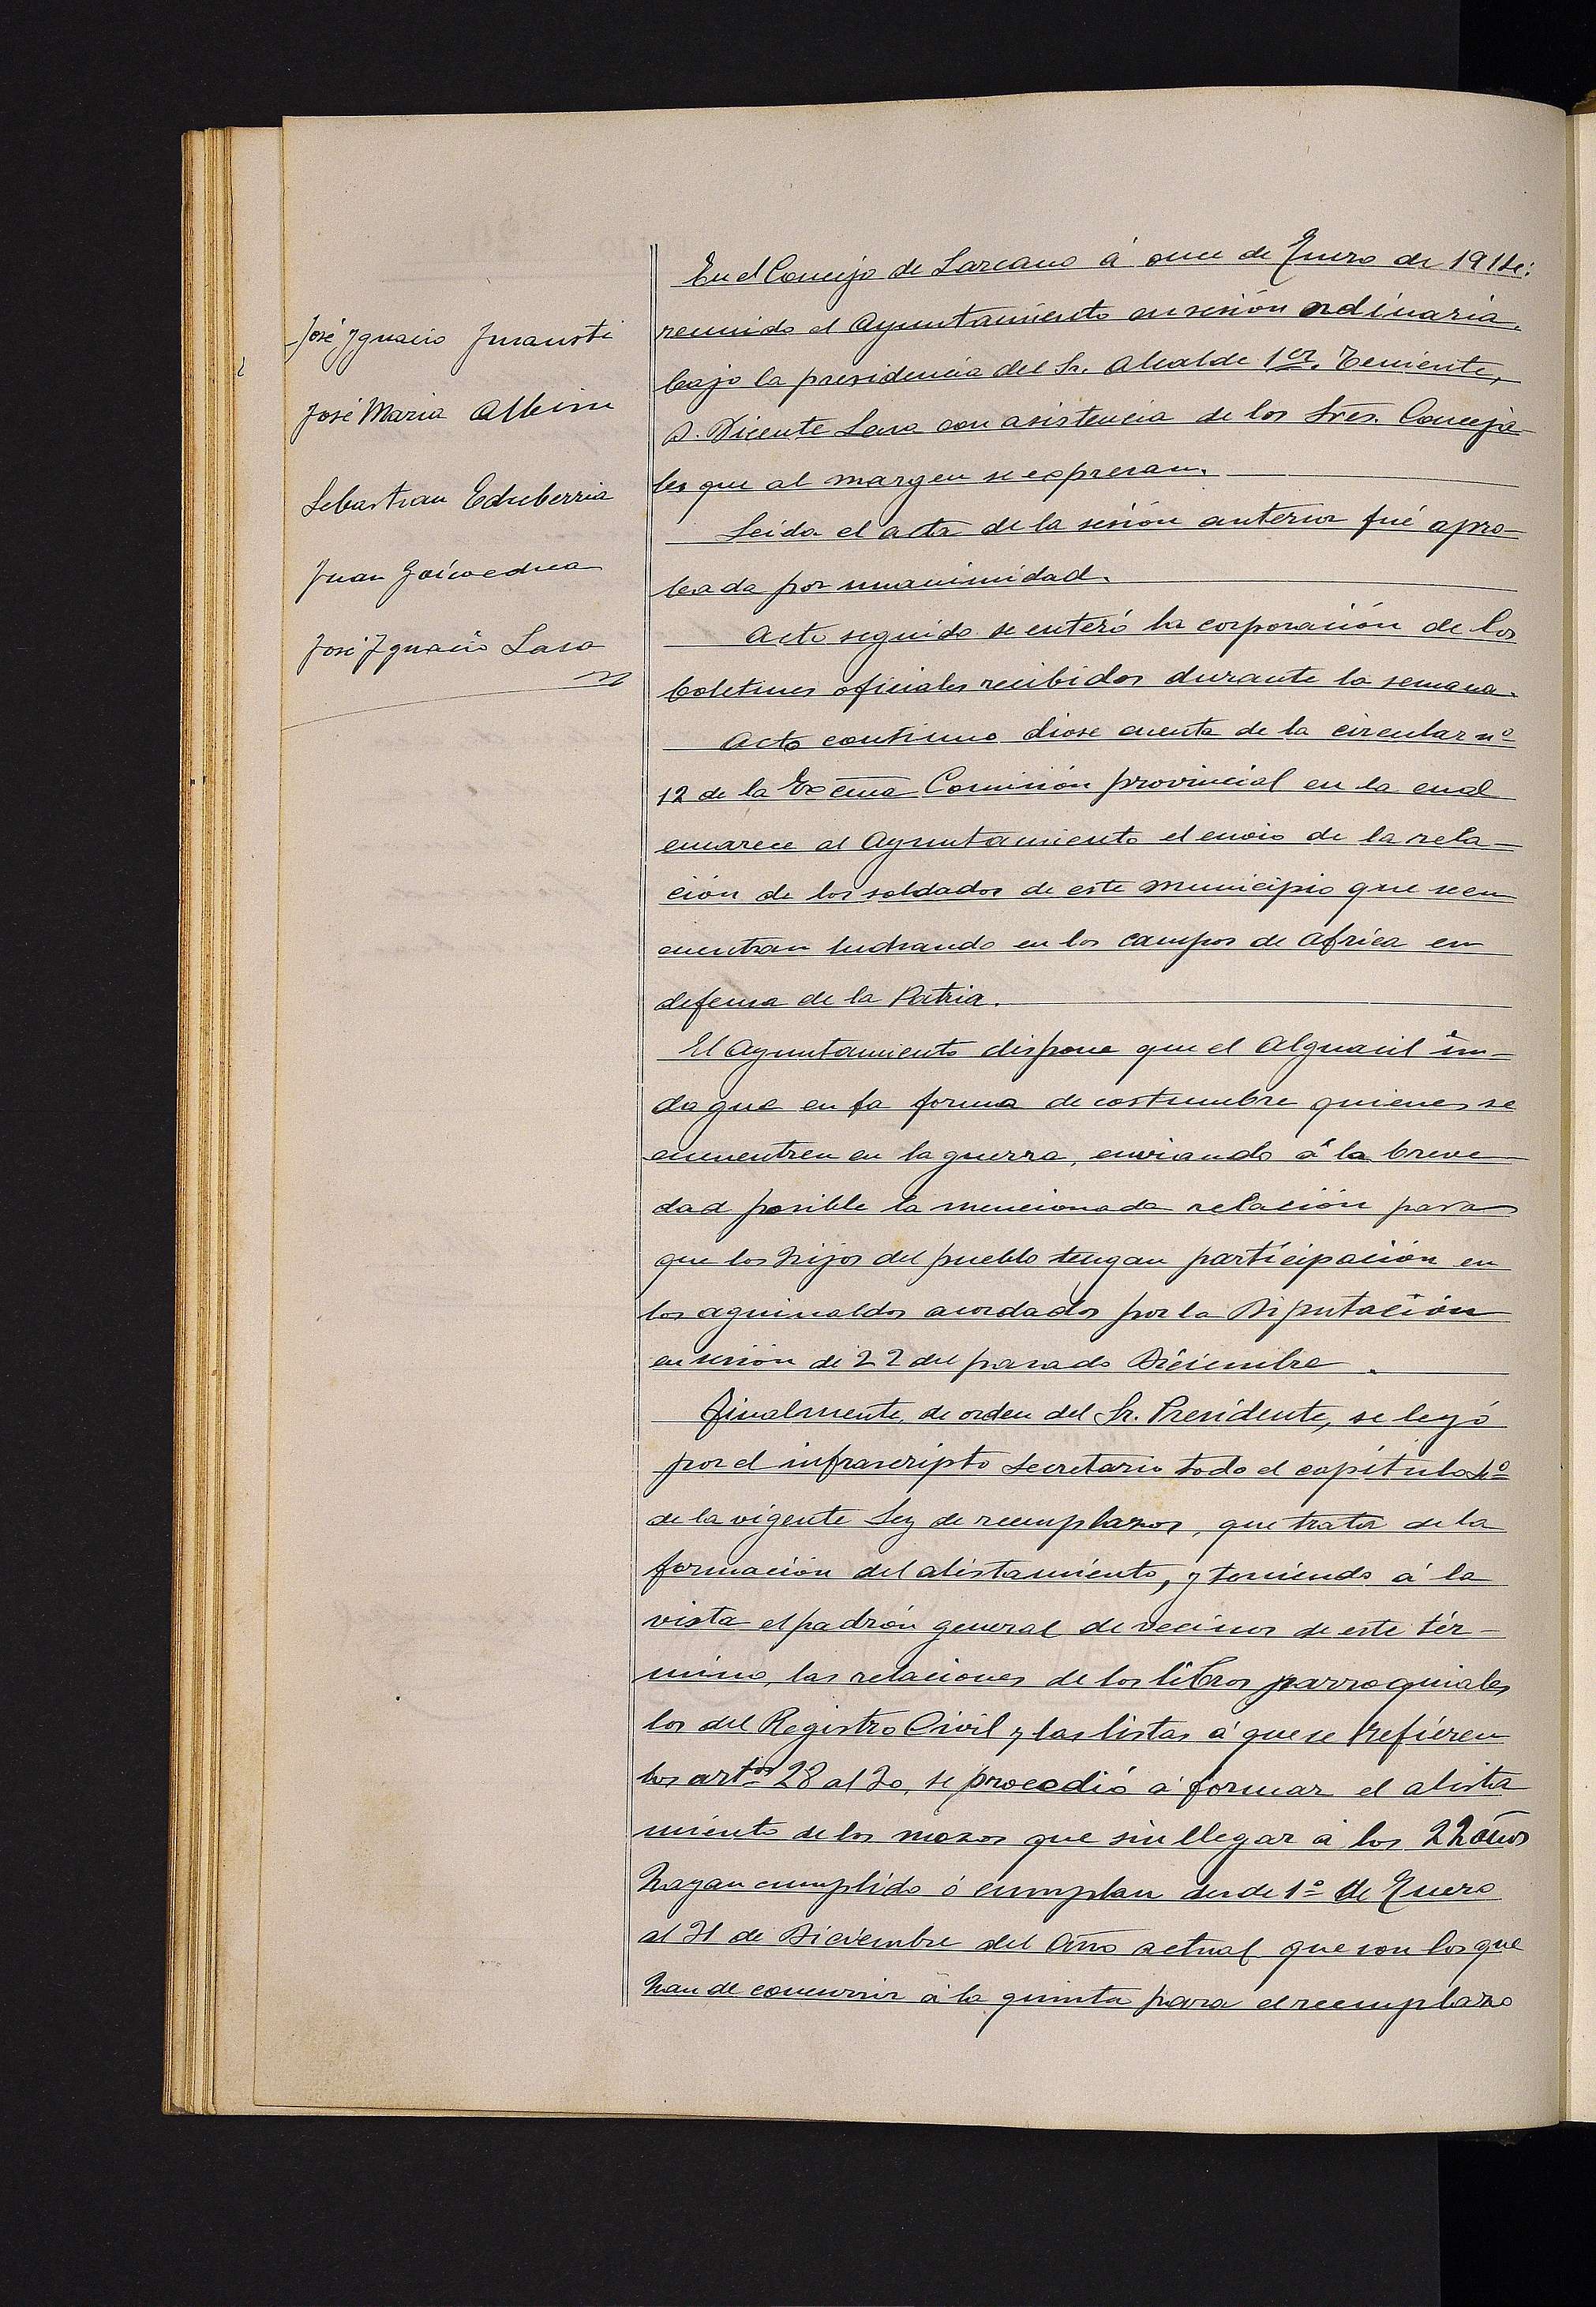 José Ygnacio Ynausti
José Maria Albisu
Sebastian Echeberria
Juan Goicoechea
José Ygnacio Lasa
En el Concejo de Lazcano á once de Enero de 1914:
reunido el Ayuntamiento en sesión ordinaria,
bajo la presidencia del Sr. Alcalde 1er. Teniente,
D. Vicente Lasa con asistencia de los Sres. Conceja-
les que al margen se expresan.
Leida el acta de la sesión anterior fué apro-
bada por unanimidad.
Acto seguido se enteró la corporación de los
boletines oficiales recibidos durante la semana.
Acto continuo diose cuenta de la circular nº
12 de la Excma Comisión provincial en la cual
encarece al Ayuntamiento el envio de la rela-
ción de los soldados de este municipio que se en
cuentran luchando en los campos de Africa en
defensa de la Patria.
El Ayuntamiento dispone que el Alguacil in-
dague en la forma de costumbre quienes se
encuentren en la guerra, enviando á la breve
dad posible la mencionada relación para
que los hijos del pueblo tengan participación en
los aguinaldos acordados por la Diputación
en sesión de 22 del pasado Diciembre.
Finalmente, de orden del Sr. Presidente, se leyó
por el infrascripto Secretario todo el capítulo 4º
de la vigente Ley de reemplazos, que trata de la
formación del alistamiento, y teniendo á la
vista el padrón general de vecinos de este tér-
mino, las relaciones de los libros parroquiales
los del Registro Civil y las listas á que se refieren
los artos 28 al 30, se procedió á formar el alista
miento de los mozos que sin llegar á los 22 años
hayan cumplido ó cumplan desde 1º de Enero
al 31 de Diciembre del Año actual que son los que
han de concurrir á la quinta para el reemplazo